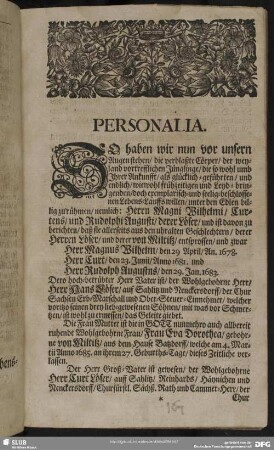 PERSONALIA.
SO haben wir nun vor unsern
Augen stehen / die verblaßte Cörper / der wey-
land vortrefflichen Jünglinge / die so wohl umb
Ihrer Ankunfft / als glücklich-geführten / und
endlich / wiewohl frühzeitigen und Leyd-brin-
genden / doch exemplarisch- und seelig-beschlosse-
nen Lebens-Lauffs willen / unter den Edlen bil-
lig zu rühmen / nemlich: Herrn Magni Wilhelmi / Cur-
tens / und Rudolphi Augusti / derer Löser / und ist davon zu
berichten / daß sie allerseits aus den uhralten Geschlechtern / derer
Herren Löser / und derer von Miltitz / entsprossen / und zwar
Herr Magnus Wilhelm / den 29. April / An. 1678.
Herr Curt / den 23. Junii / Anno 1681. und
Herr Rudolph Augustus / den 29. Jan. 1683.
Dero hoch-betrübter Herr Vater ist / der Wohlgebohrne Herr /
Herr Hans Löser / auf Sahlitz und Nenckersdorff / der Chur
Sachsen Erb-Marschall und Ober-Steuer-Einnehmer / welcher
voritzo seinen dreyen lieb-gewesenen Söhnen / mit was vor Schmer-
tzen / ist wohl zu ermessen / das Geleite giebet.
Die Frau Mutter ist die in GOTT nunmehro auch allbereit
ruhende Wohlgebohrne Frau / Frau Eva Dorothea / gebohr-
ne von Miltitz / aus dem Hause Batzdorff / welche am 4. Mar-
tii Anno 1685. an ihrem 27. Geburths-Tage / dieses Zeitliche ver-
lassen.
Der Herr Groß-Vater ist gewesen / der Wohlgebohrne
Herr Curt Löser / auf Sahlitz / Reinhards / Hänichen und
Nenckersdorff / Churfürstl. Sächß. Rath und Cammer-Herr / der
Chur
bens-
SLUB